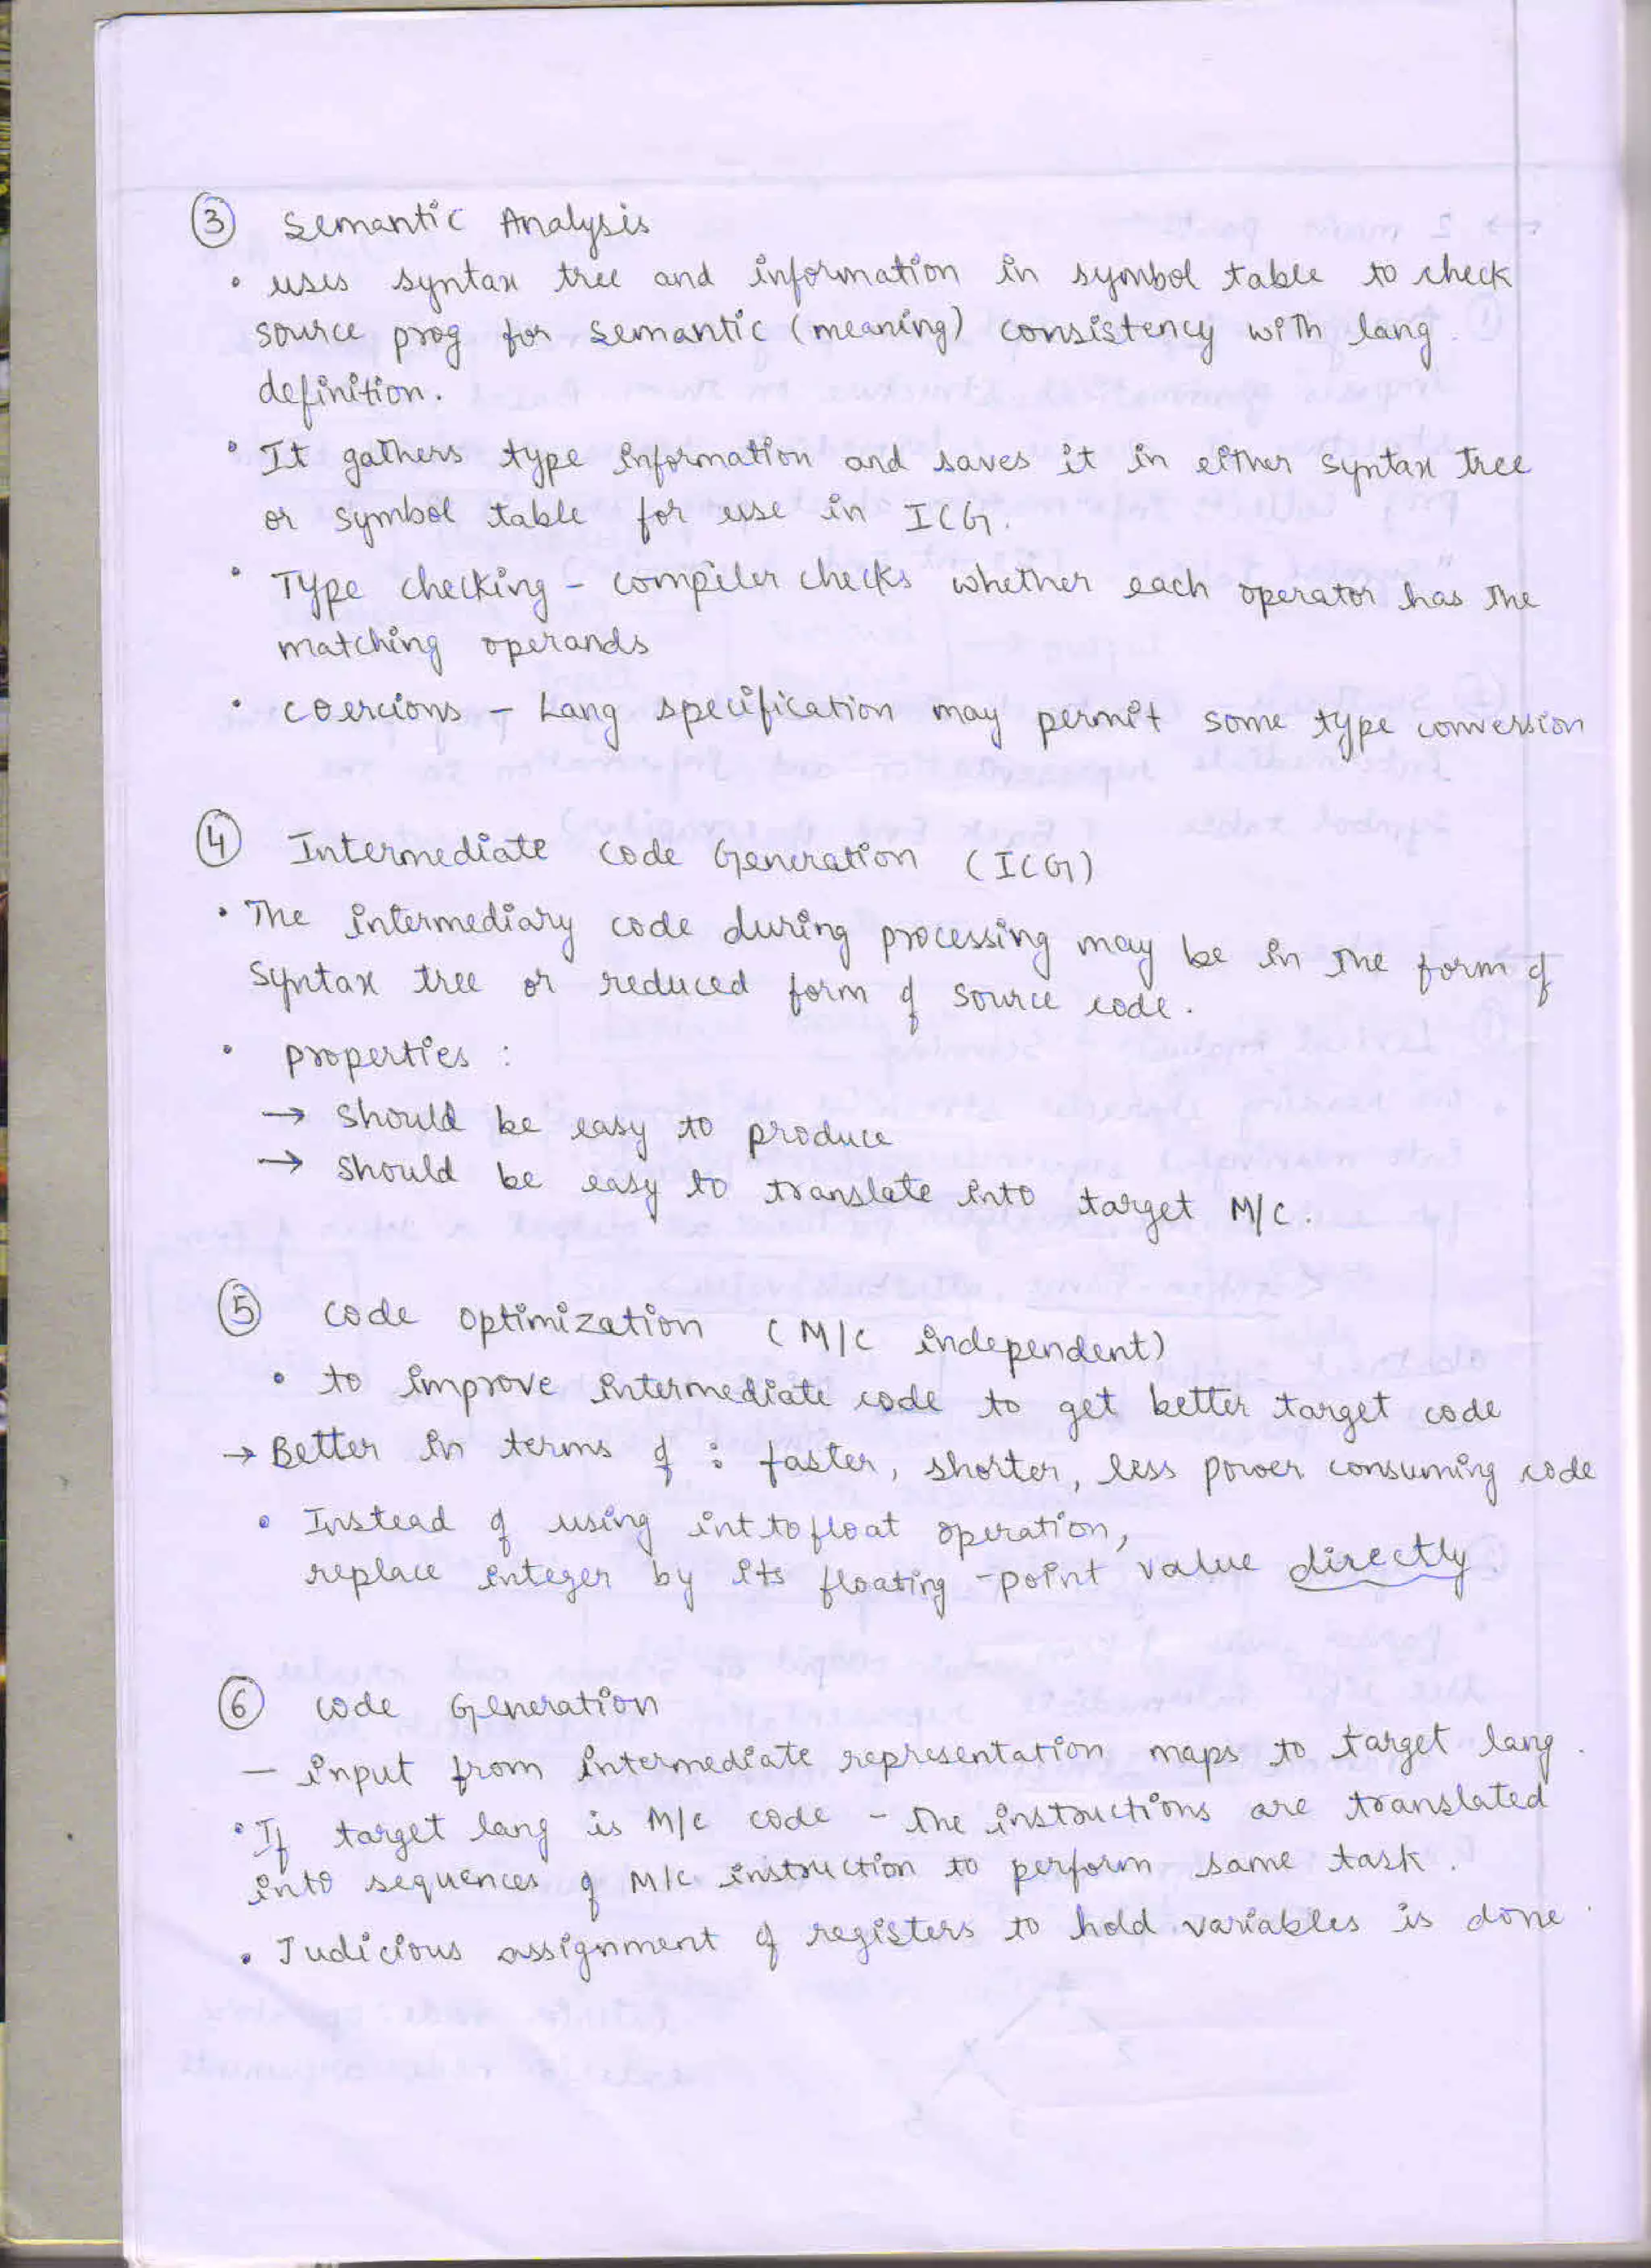 ③ Semantic Analysis
• uses syntax tree and information in symbol table to check
source prog for semantic (meaning) consistency with lang.
definition.
• It gathers type information and saves it in either syntax tree
or symbol table for use in ICG.
• Type checking - compiler checks whether each operator has the
matching operands
• coercions - Lang specification may permit some type conversion
④ Intermediate code Generation (ICG)
• The intermediary code during processing may be in the form of
syntax tree or reduced form of source code.
• properties :
→ should be easy to produce
→ should be easy to translate into target M/C.
⑤ code optimization (M/C independent)
• to improve intermediate code to get better target code
→ Better in terms of : faster, shorter, less power consuming code
• Instead of using inttofloat operation,
replace integer by its floating-point value directly.
⑥ code Generation
- input from intermediate representation maps to target lang.
• If target lang is M/C code - the instructions are translated
into sequences of M/C instruction to perform same task.
• Judicious assignment of registers to hold variables is done.